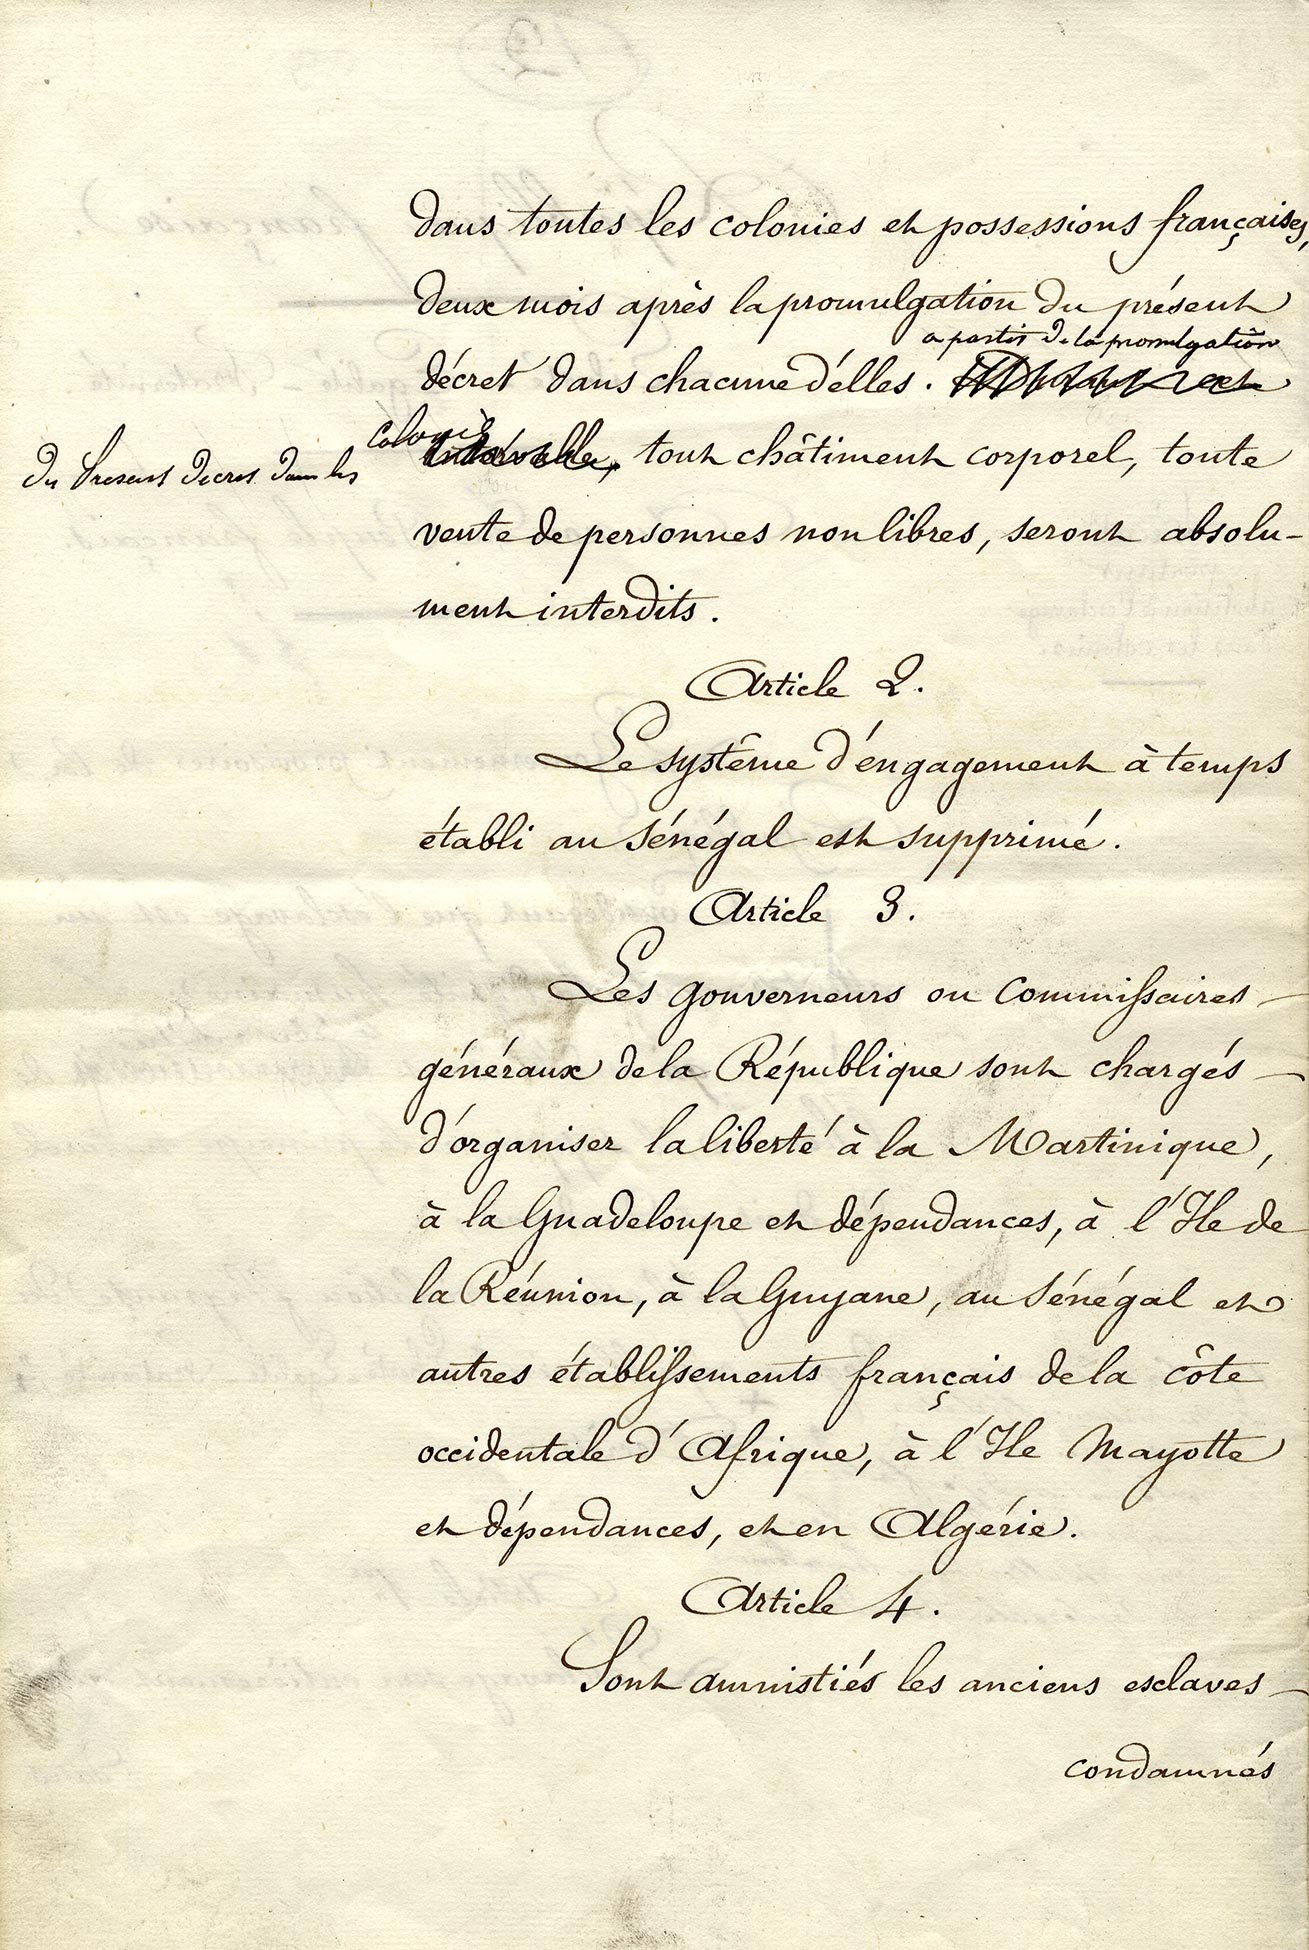 dans toutes les colonies et possessions françaises,
deux mois après la promulgation du présent
a partir de la promulgation
décret dans chacune d'elles.
du Présent décret dans les
colonies
tout châtiment corporel, toute
vente de personnes non libres, seront absolu-
ment interdits.
Article 2.
Le système d'engagement à temps
établi au Sénégal est supprimé.
Article 3.
Les gouverneurs ou Commissaires
généraux de la République sont chargés
d'organiser la liberté à la Martinique,
à la Guadeloupe et dépendances, à l'Ile de
la Réunion, à la Guyane, au Sénégal et
autres établissements français de la côte
occidentale d'Afrique, à l'Ile Mayotte
et dépendances, et en Algérie.
Article 4.
Sont amnistiés les anciens esclaves
condamnés